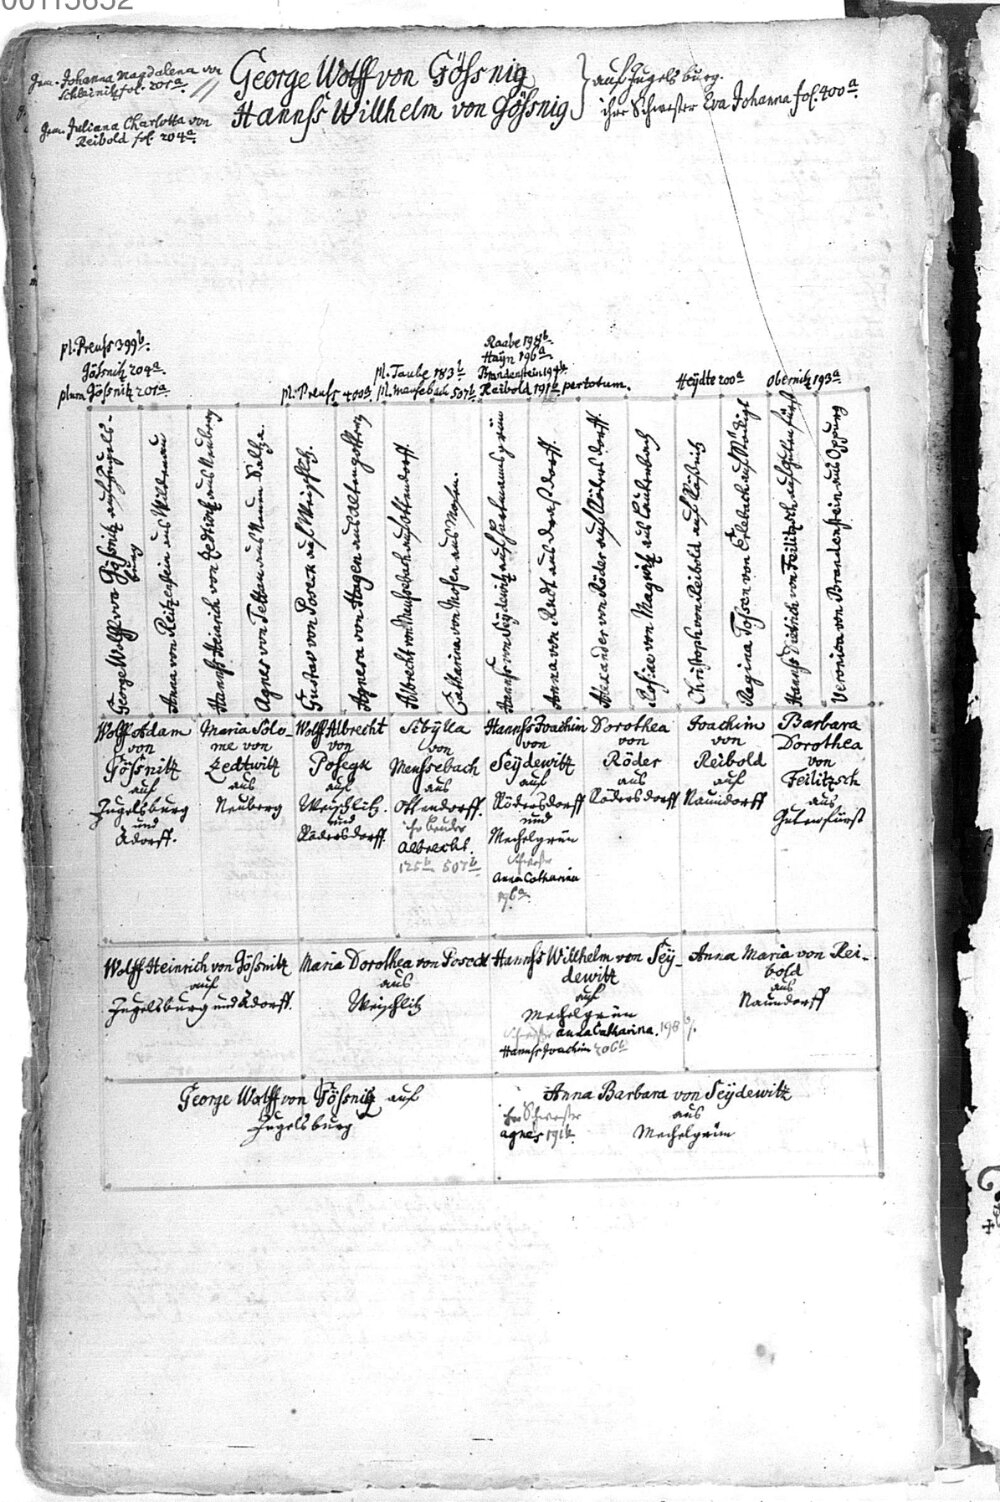 00115652
Gem. Johanna Magdalena von
Schleinitz fol. 201a.
George Wolff von Gößnig
auf Zugelsburg.
Hannß Willhelm von Gößnig
ihre Schwester Eva Johanna fol. 400a.
Gem. Juliana Charlotta von
Reibold fol. 204a.
pl. Preuß 399b.
Gößnitz 204a.
plura Gößnitz 201a.
pl. Preuß 400a.
pl. Taube 183b
pl. Meusebach 507b.
Raabe 198b.
Haÿn 196a.
Brandenstein
Reibold 191a per totum.
Heÿdte 200a
Obernitz 193a.
George Wolff von Gößnitz auf Zugels-
burg
Anna von Reitzenstein aus Wildenau
Hannß Heinrich von Zedtwitz aus Neuberg
Agnes von Tettau aus
Gustav von Poseck auf Weischlitz.
Agnesa von Hagen aus Altengottern
Albrecht von Meusebach auf Ottendorff.
Catharina von Mosen aus Mosen.
Hannß von Seÿdewitz auf
Anna von
Alexander von Röder auf Rödersdorff.
Rosine von Magwitz aus
Christoph von Reibold auf Rößnitz
Regina von
Hannß Dietrich von Feilitzsch auf Gutenfürst
Veronica von Brandenstein aus Oppurg
Wolff Adam
von
Gößnitz
auf
Zugelsburg
und
Adorff.
Maria Salo-
me von
Zedtwitz
aus
Neuberg
Wolff Albrecht
von
Posegk
auf
Weischlitz.
und
Rödersdorff.
Sibÿlla
von
Meussebach
aus
Ottendorff.
ihr Bruder
Albrecht.
125b 507b.
Hannß Joachim
von
Seÿdewitz
auf
Rödersdorff
und
Mechelgrün
Schwester
Anna Catharina
Dorothea
von
Röder
aus
Rödersdorff
Joachim
von
Reibold
auf
Naundorff
Barbara
Dorothea
von
Feilitzsch
aus
Gutenfürst
Wolff Heinrich von Gößnitz
auf
Zugelsburg und Adorff.
Maria Dorothea von Poseck
aus
Weischlitz
Hannß Willhelm von Seÿ-
dewitz
auf
Mechelgrün
Schwester Anna Catharina. 198b.
Hannß Joachim 206b
Anna Maria von Rei-
bold
aus
Naundorff
George Wolff von Gößnitz auf
Zugelsburg
Anna Barbara von Seÿdewitz
aus
Mechelgrün
ihr Schwester
Agnes 191b.